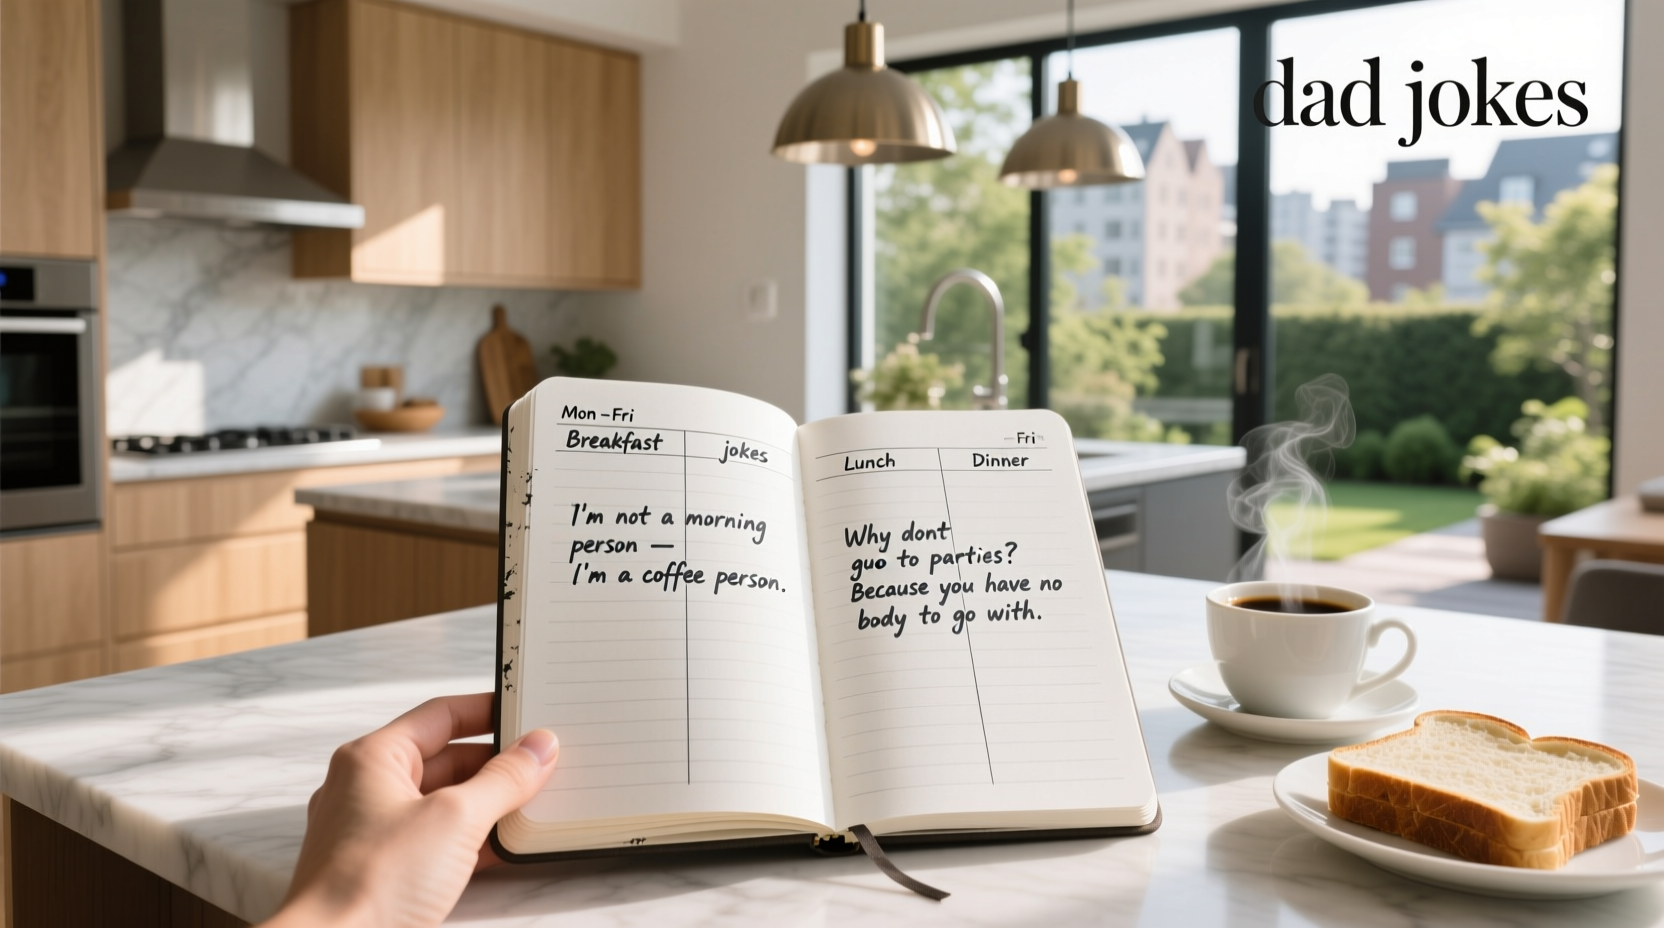 dad jokes
Mon – Fri
Breakfast
jokes
I'm not a morning
person —
I'm a coffee person.
– Fri
Lunch
Dinner
Why dont
guo to parties?
Because you have no
body to go with.